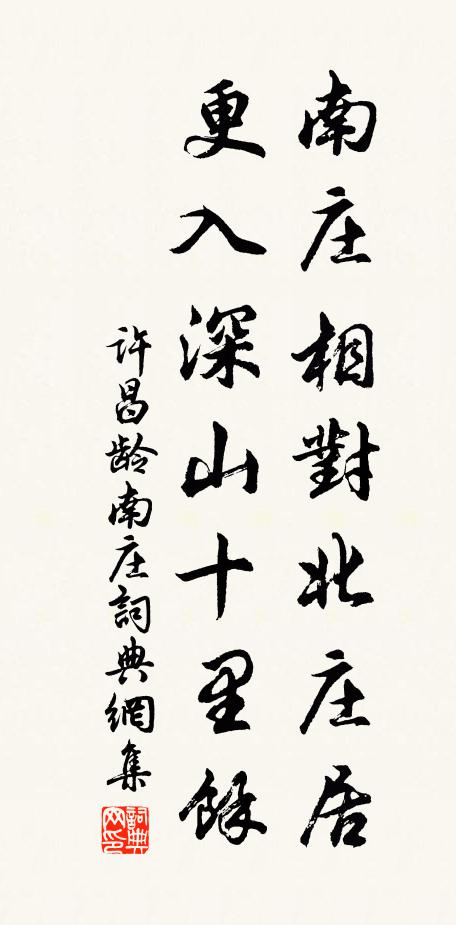 南庄相對北庄居
更入深山十里餘
許昌龄南庄詞典網集
詞典
网印